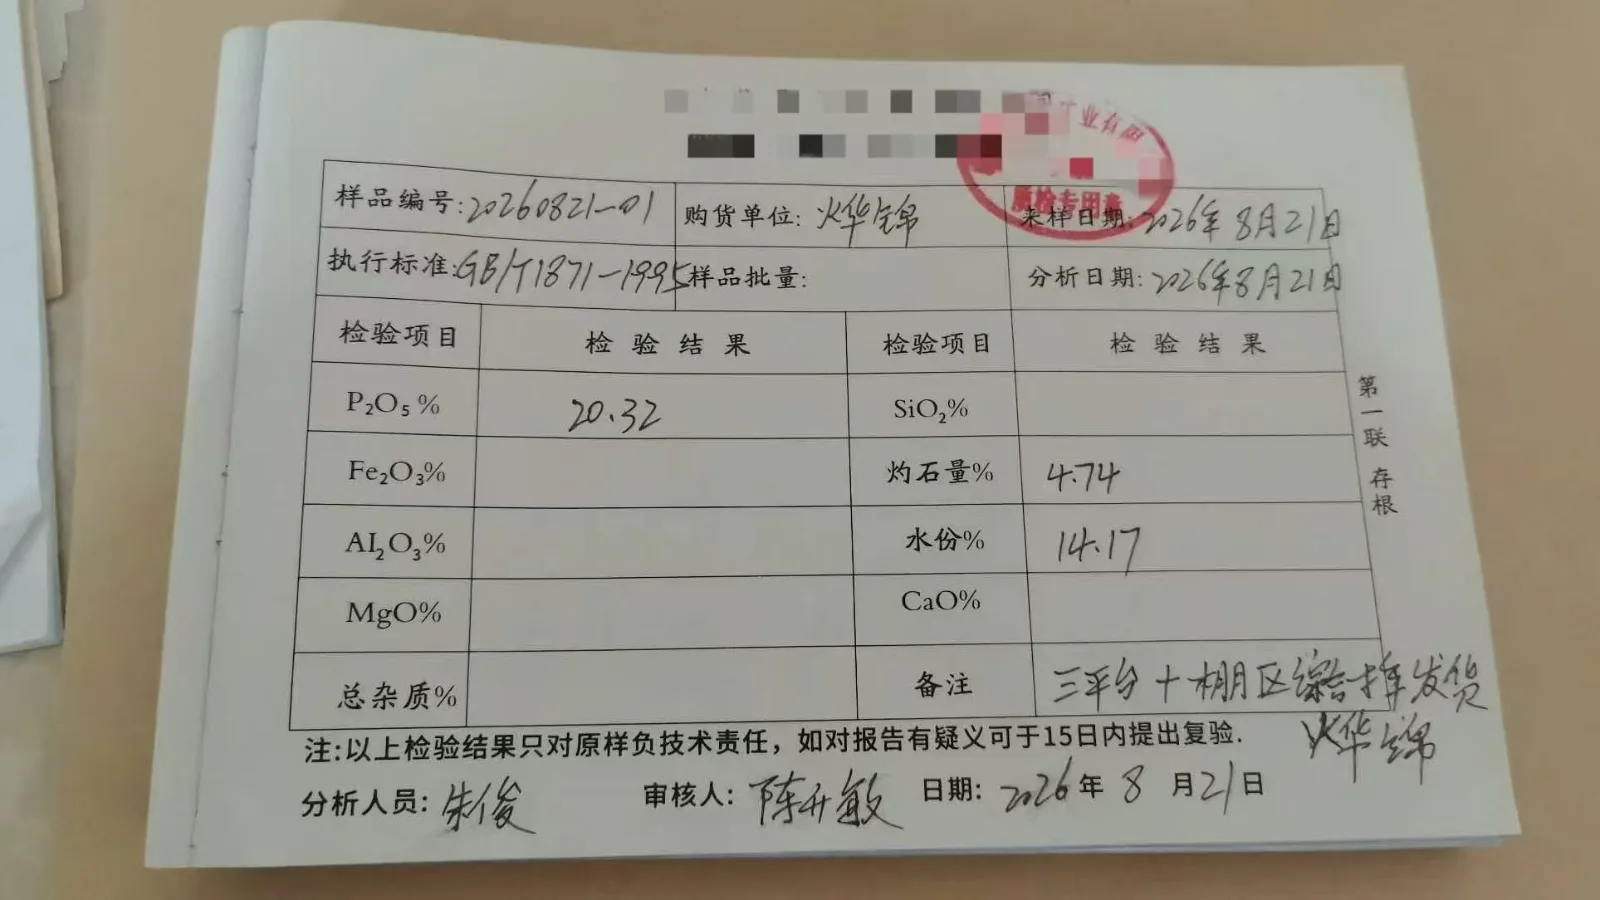 工业有限
质检专用章
样品编号:20260821-01 购货单位:火华锦 来样日期:2026年8月21日
执行标准:GB/T1871-1995 样品批量: 分析日期:2026年8月21日
检验项目 检验结果 检验项目 检验结果
P₂O₅% 20.32 SiO₂%
Fe₂O₃% 灼石量% 4.74
Al₂O₃% 水份% 14.17
MgO% CaO%
总杂质% 备注 三平台+棚区综合样发货
火华锦
注:以上检验结果只对原样负技术责任，如对报告有疑义可于15日内提出复验.
分析人员:朱俊 审核人:陈升敏 日期:2026年8月21日
第一联 存根